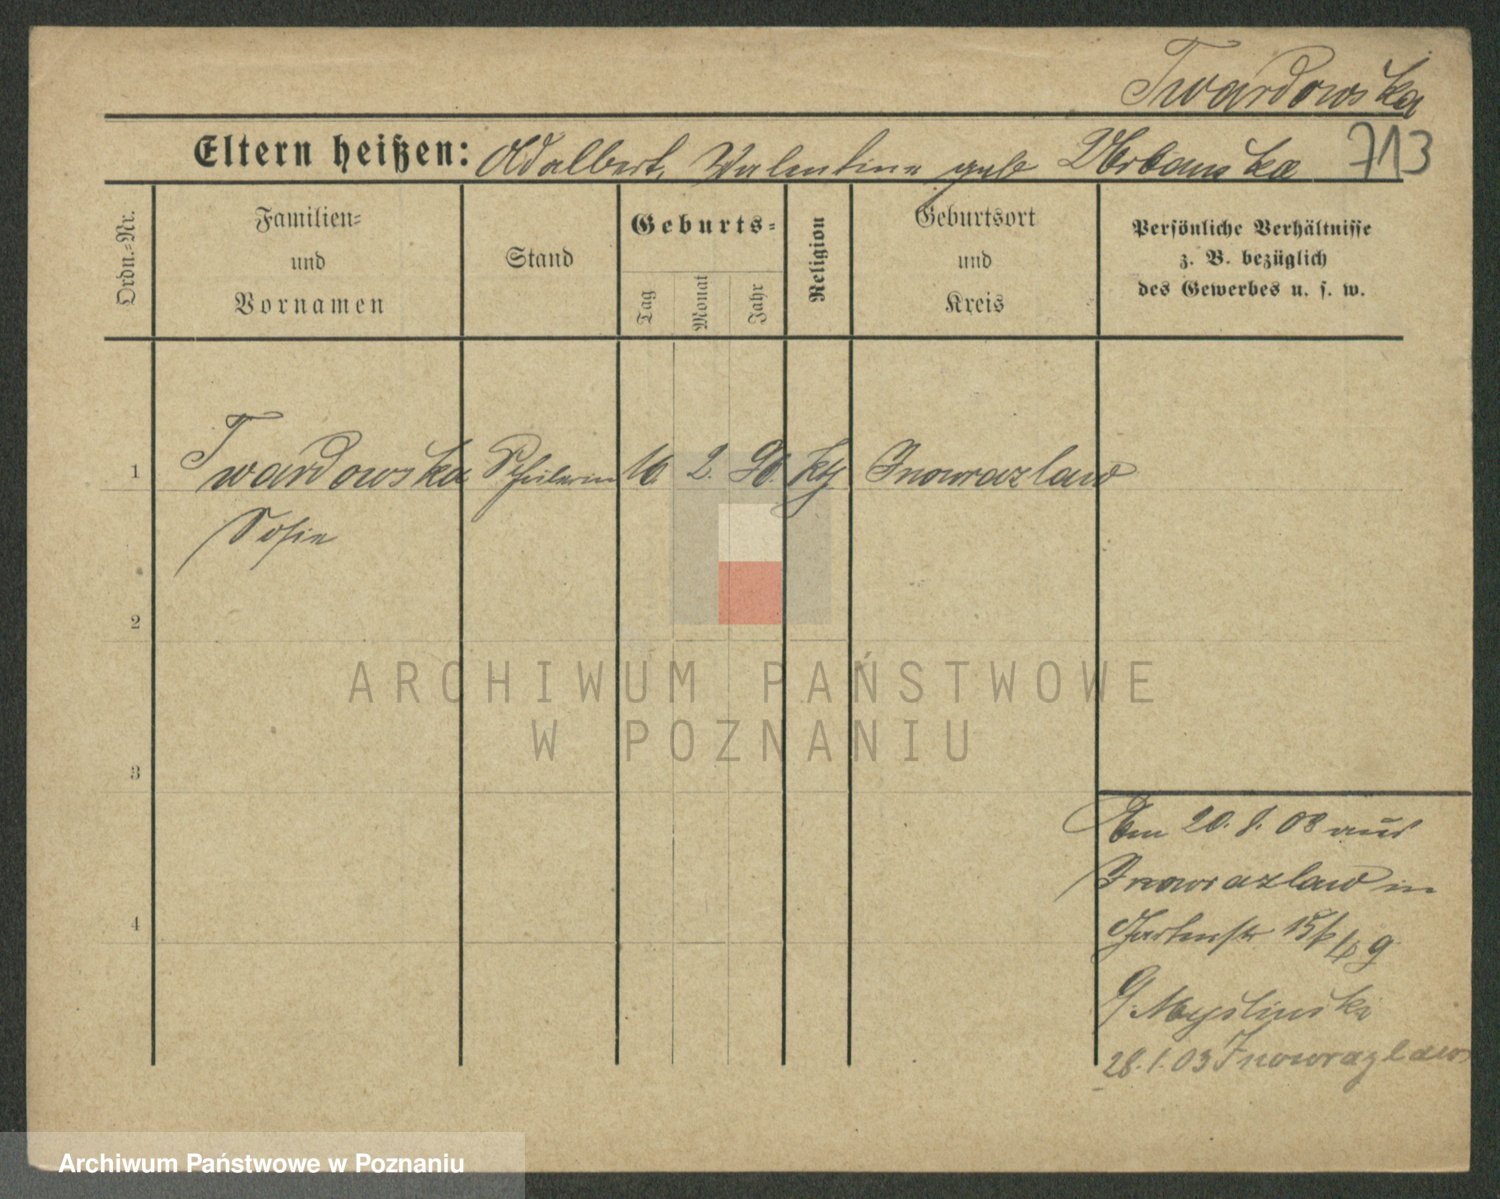 Twardowska
713
Eltern heißen: Adalbert, Valentine geb Urbanska
Ordn.=Nr.
Familien=
und
Vornamen
Stand
Geburts=
Tag
Monat
Jahr
Religion
Geburtsort
und
Kreis
Persönliche Verhältnisse
z. B. bezüglich
des Gewerbes u. s. w.
1 Twardowska Schülerin 16. 2. 90. kth Inowrazlaw
Sofie
2
ARCHIWUM PAŃSTWOWE
W POZNANIU
3
Am 20. 1. 03 aus
Inowrazlaw in
Gartenstr 15
Myślinski
28. 1. 03 Inowrazlaw
4
Archiwum Państwowe w Poznaniu